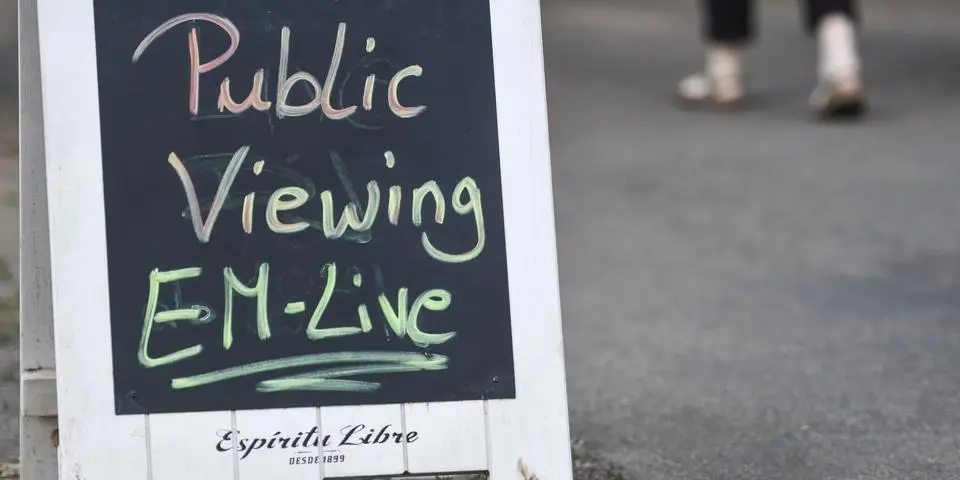 Public
Viewing
EM-Live
Espíritu Libre
DESDE 1899